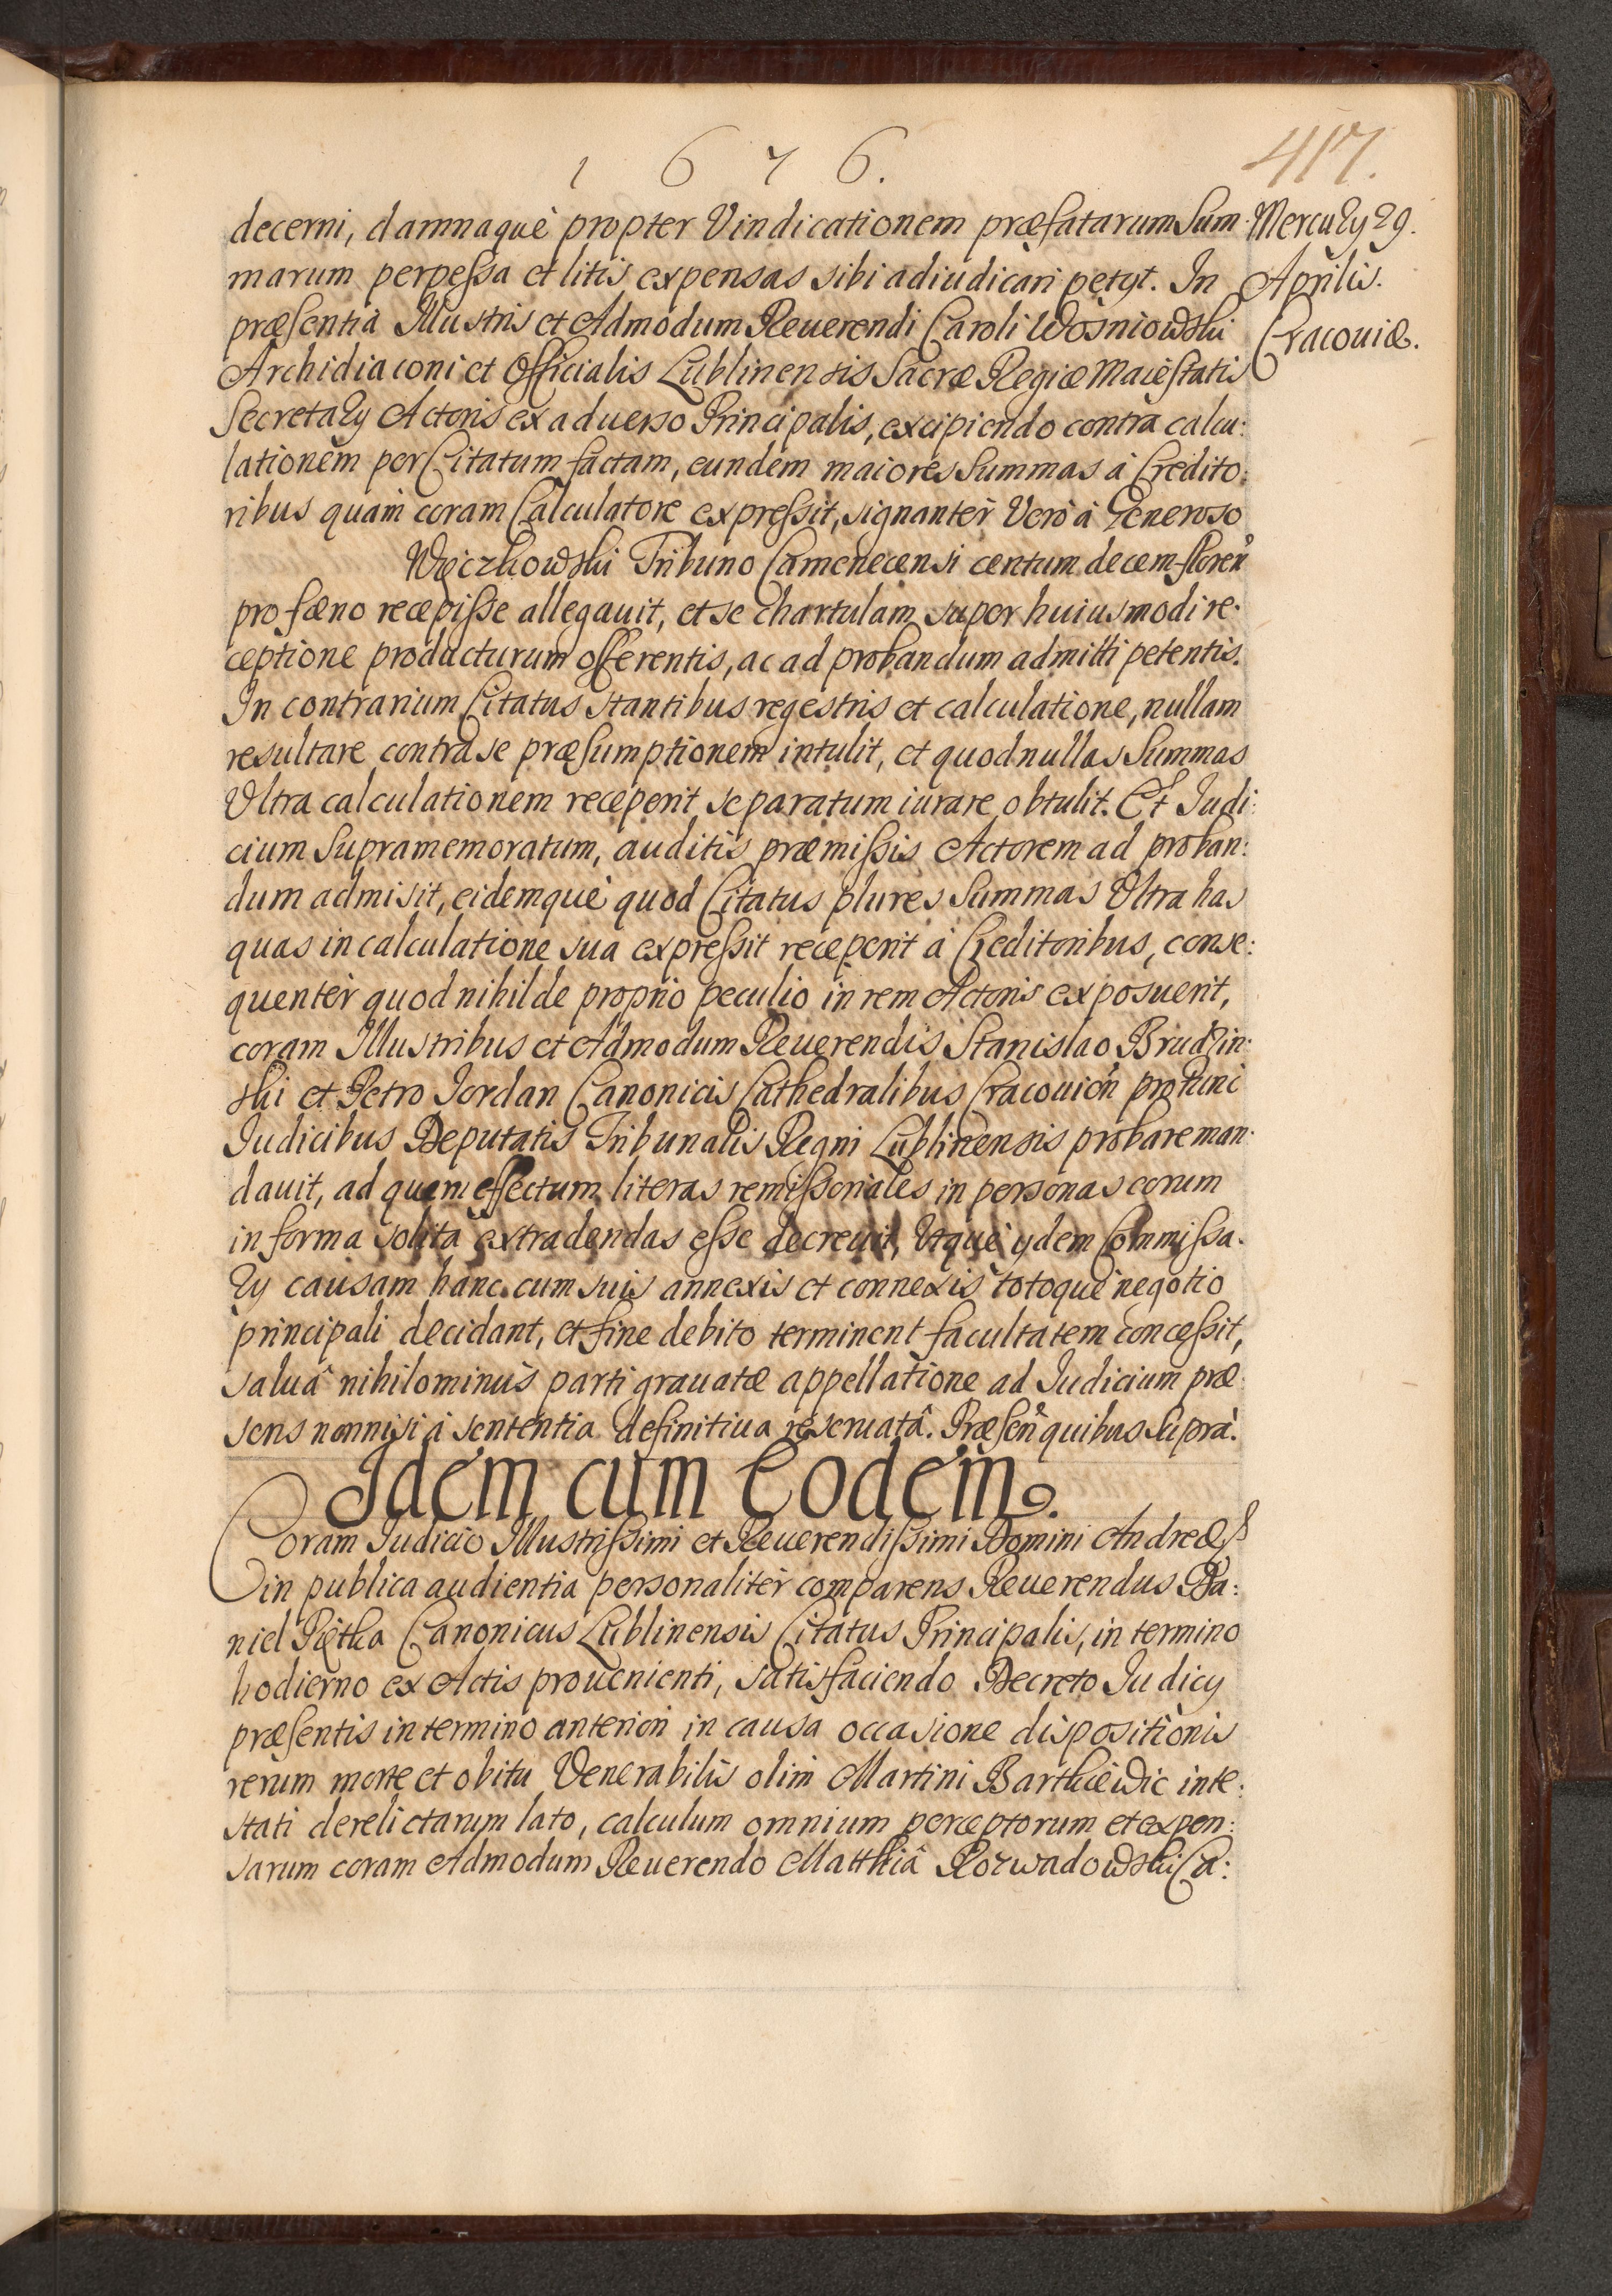 1676.
417.
decerni, damnaquè propter Vindicationem præsatarum Sum:
marum perpessa et litis expensas sibi adiudicari petyt. In
præsentia Illustris et Admodum Reuerendi Caroli Wosniowski
Archidiaconi et Officialis Lublinensis Sacræ Regiæ Maiestatis
Secretary Actoris ex aduerso Principalis, excipiendo contra calcu:
lationem per Citatum factam, eundem maiores Summas à Credito:
ribus quàm coram Calculatore expressit, signanter Verò à Generoso
Węczkowski Tribuno Camenecensi centum decem floren
pro fæno recepisse allegauit, et se chartulam super huiusmodi re:
ceptione producturum offerentis, ac ad probandum admitti petentis.
In contrarium Citatus stantibus regestris et calculatione, nullam
resultare contra se præsumptionem intulit, et quod nullas Summas
Vltra calculationem receperit separatum iurare obtulit. Et Judi:
cium Supramemoratum, auditis præmissis Actorem ad proban:
dum admisit, eidemquè quod Citatus plures Summas Vltra has
quas in calculatione sua expressit receperit à Creditoribus, conse:
quentèr quod nihil de proprio peculio in rem Actoris exposuerit,
coram Illustribus et Admodum Reuerendis Stanislao Brudzin:
ski et Petro Jordan Canonicis Cathedralibus Cracouień pro tunc
Judicibus Deputatis Tribunalis Regni Lublinensis probare man:
dauit, ad quem effectum literas remissoriales in personas eorum
in forma solita extradendas esse decreuit, Vtquè ydem Commissa:
ry causam hanc cum suis annexis et connexis totoquè negotio
principali decidant, et fine debito terminent facultatem concessit,
saluâ nihilominùs parti grauatæ appellatione ad Judicium præ:
sens nonnisi à sententia definitiua reseruatâ. Præsen quibus Suprà.
Idem cum Eodem.
Coram Judicio Illustrissimi et Reuerendissimi Domini Andreæ
in publica audientia personalitèr comparens Reuerendus Da:
niel Piętka Canonicus Lublinensis Citatus Principalis, in termino
hodierno ex Actis prouenienti, satisfaciendo Decreto Judicy
præsentis in termino anteriori in causa occasione dispositionis
rerum morte et obitu Venerabilis olim Martini Barthlewic inte:
stati derelictarum lato, calculum omnium perceptorum et expen:
sarum coram Admodum Reuerendo Matthiâ Rozwadowski Ca:
Mercury 29.
Aprilis.
Cracouiæ.